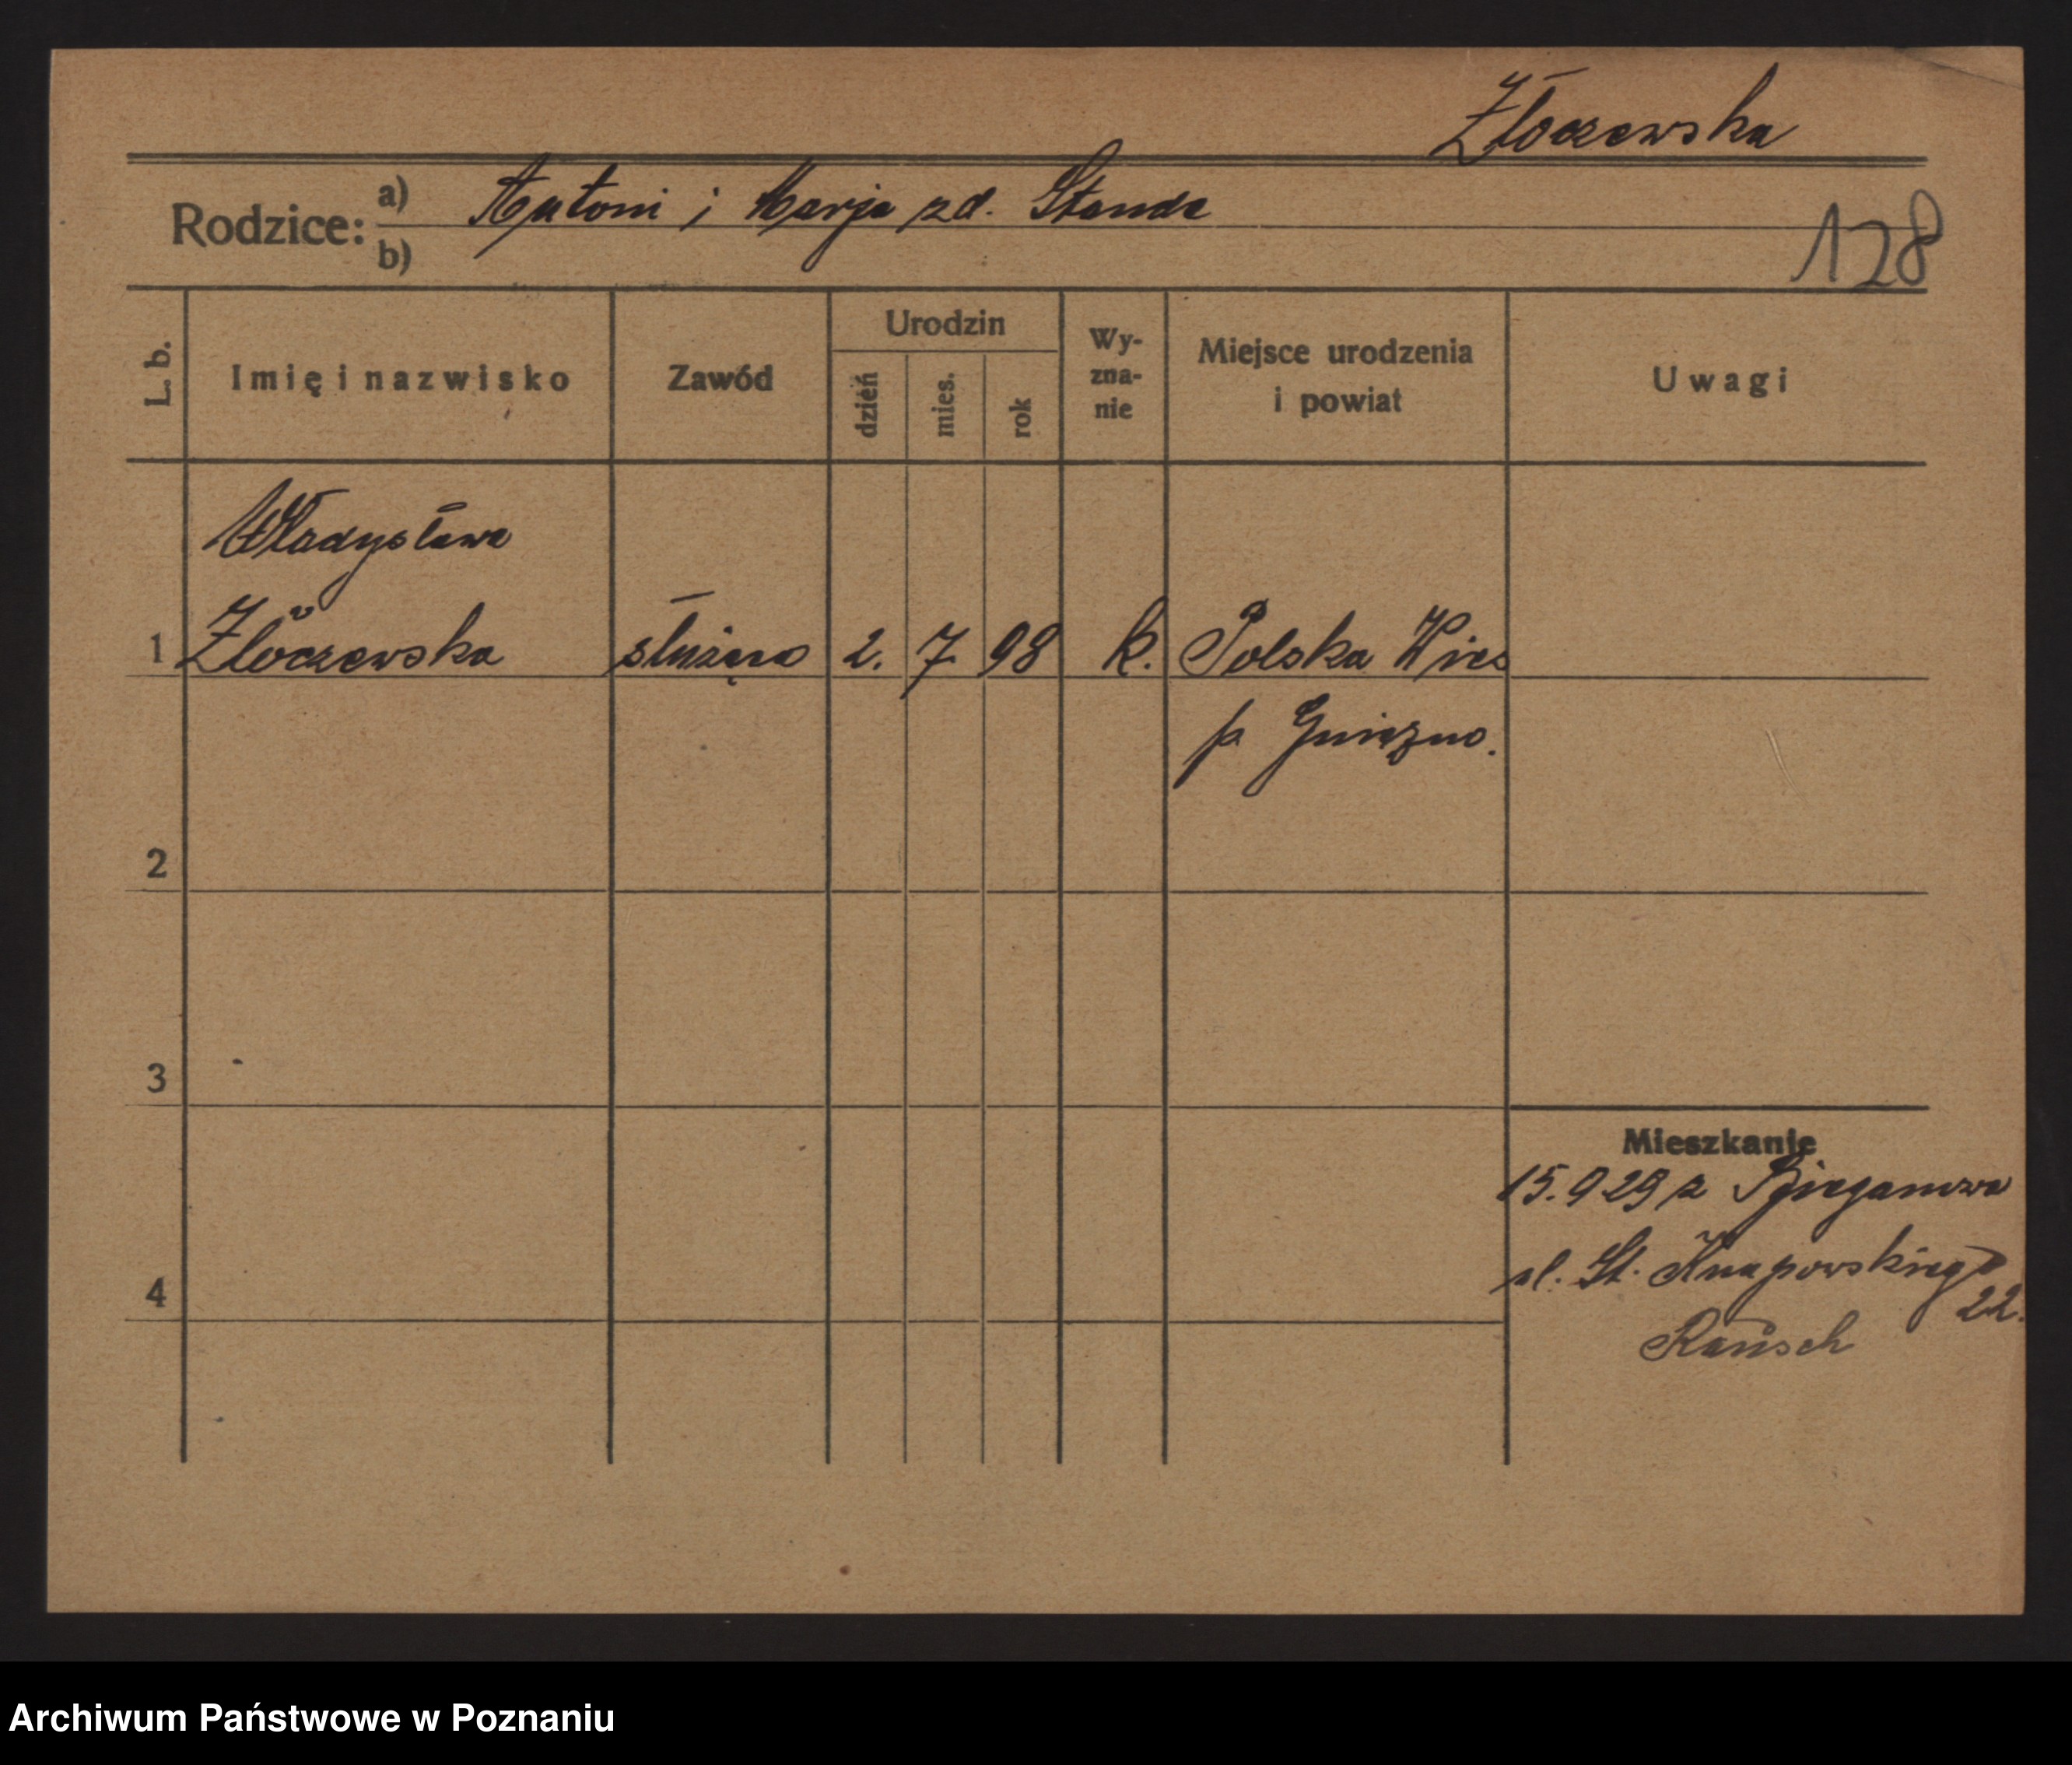 Złoczewska
Rodzice: a) Antoni i Marja zd. Standa
b)
128
L. b.
Imię i nazwisko
Zawód
Urodzin
dzień
mies.
rok
Wy-
zna-
nie
Miejsce urodzenia
i powiat
Uwagi
Władysława
1 Złoczewska służąca 2. 7 98 k. Polska Wieś
p. Gniezno.
2
3
Mieszkanie
15.9 29 z
4
ul. St. Knapowskiego
22.
Rausch
Archiwum Państwowe w Poznaniu